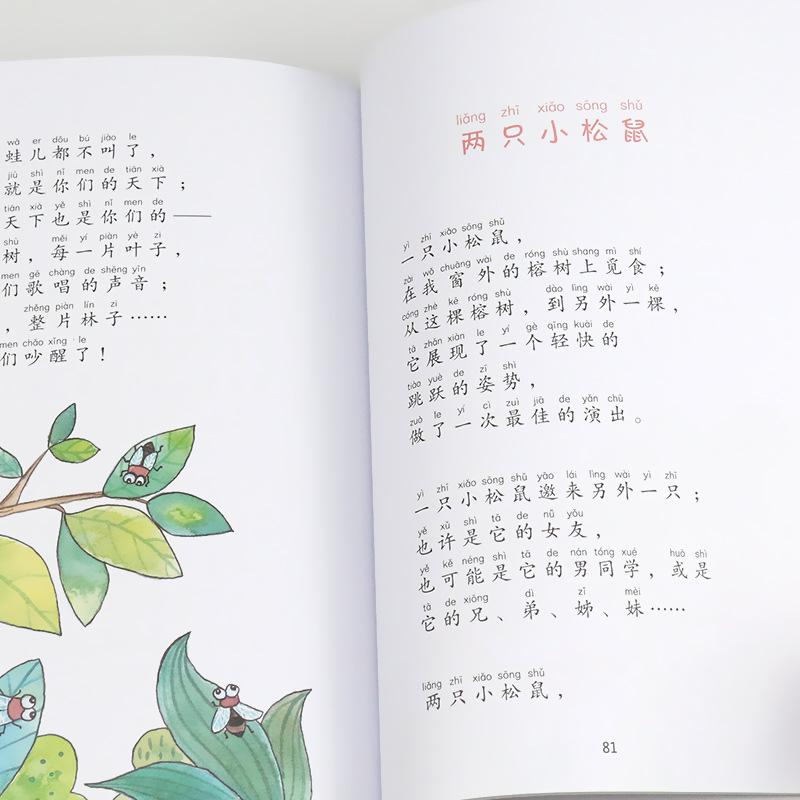 wà er dōu bú jiào le
蛙儿都不叫了，
jiù shì nǐ men de tiān xià
就是你们的天下；
tiān xià yě shì nǐ men de
天下也是你们的——
shù měi yí piàn yè zi
树，每一片叶子，
men gē chàng de shēng yīn
们歌唱的声音；
zhěng piàn lín zi
，整片林子……
men chǎo xǐng le
们吵醒了！
liǎng zhī xiǎo sōng shǔ
两只小松鼠
yì zhī xiǎo sōng shǔ
一只小松鼠，
zài wǒ chuāng wài de róng shù shang mì shí
在我窗外的榕树上觅食；
cóng zhè kē róng shù dào lìng wài yì kē
从这棵榕树，到另外一棵，
tā zhǎn xiàn le yí gè qīng kuài de
它展现了一个轻快的
tiào yuè de zī shì
跳跃的姿势，
zuò le yí cì zuì jiā de yǎn chū
做了一次最佳的演出。
yì zhī xiǎo sōng shǔ yāo lái lìng wài yì zhī
一只小松鼠邀来另外一只；
yě xǔ shì tā de nǚ yǒu
也许是它的女友，
yě kě néng shì tā de nán tóng xué huò shì
也可能是它的男同学，或是
tā de xiōng dì zǐ mèi
它的兄、弟、姊、妹……
liǎng zhī xiǎo sōng shǔ
两只小松鼠，
81